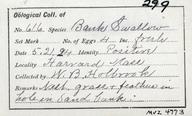 299
Oological Coll. of
No. 616 Species Bank Swallow
Set Mark No. of Eggs 4 Inc. fresh
Date 5.21.94 Identity Positive
Locality Harvard Mass
Collected by W. B. Holbrook
Remarks Nest, grass & feathers in
hole in Sand bank.